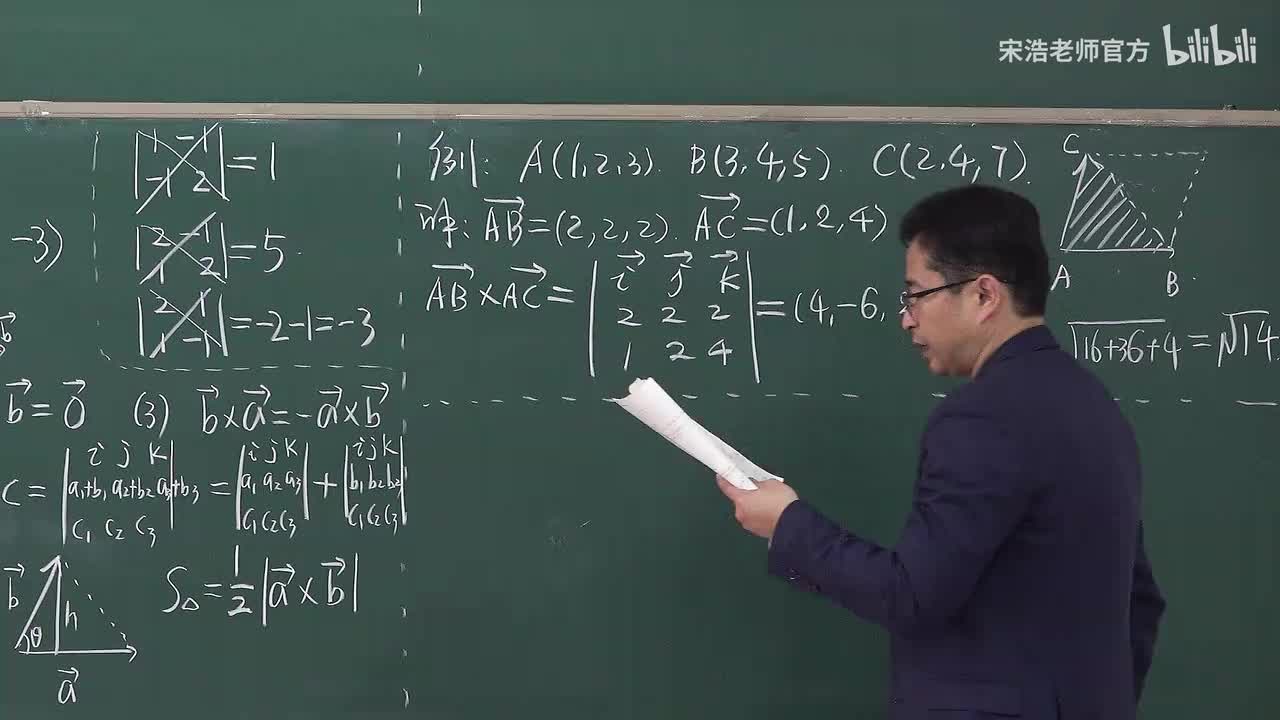 宋浩老师官方 bilibili
-3)
|1 -1; -1 2| = 1
|2 -1; 1 2| = 5
|2 1; 1 -1| = -2-1 = -3
b⃗ = 0⃗ (3) b⃗×a⃗ = -a⃗×b⃗
C = |i j k; a₁+b₁ a₂+b₂ a₃+b₃; c₁ c₂ c₃| = |i j k; a₁ a₂ a₃; c₁ c₂ c₃| + |i j k; b₁ b₂ b₃; c₁ c₂ c₃|
b⃗ h θ a⃗
S△ = ½|a⃗×b⃗|
例1: A(1,2,3). B(3,4,5). C(2,4,7).
解: AB⃗ = (2,2,2). AC⃗ = (1,2,4)
AB⃗×AC⃗ = |i⃗ j⃗ k⃗; 2 2 2; 1 2 4| = (4,-6,
C
A B
√16+36+4 = √14